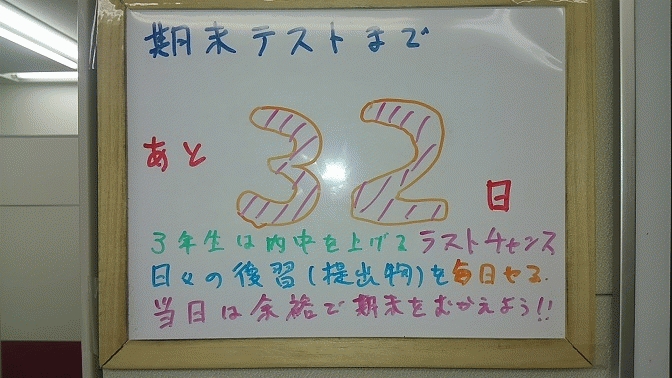 期末テストまで
あと 32 日
3年生は内申を上げるラストチャンス
日々の復習(提出物)を毎日やる.
当日は余裕で期末をむかえよう!!